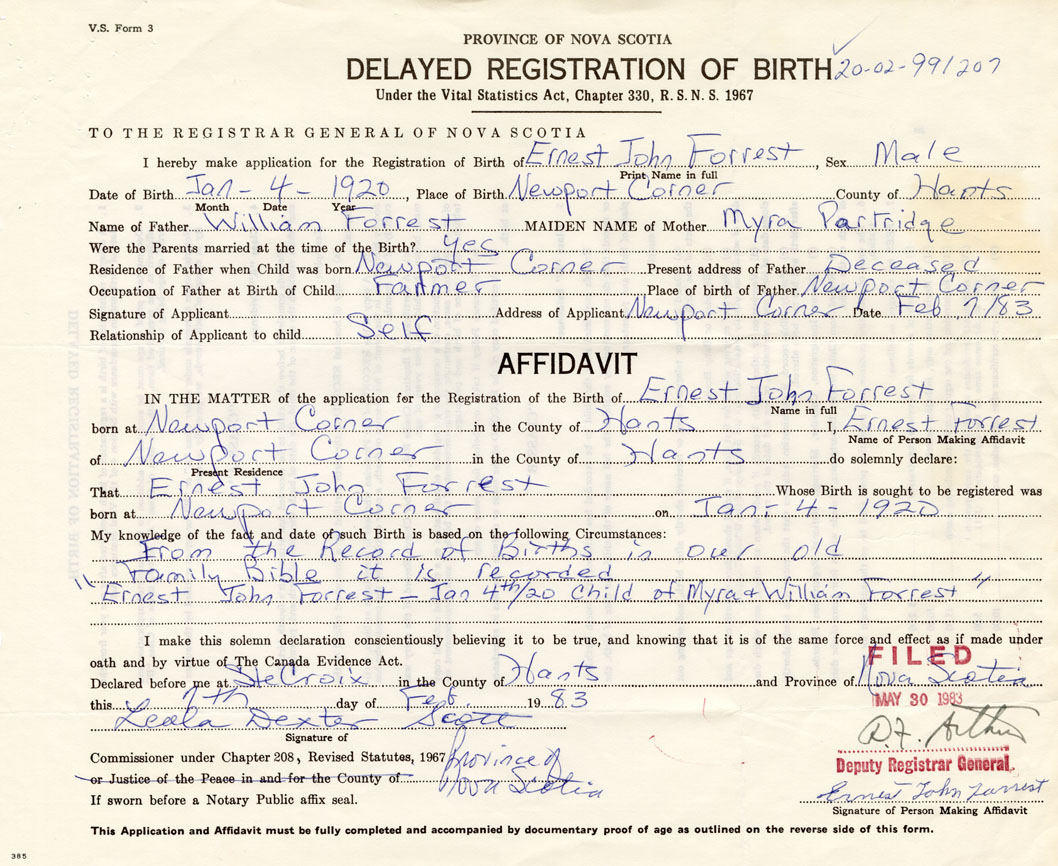 V.S. Form 3
PROVINCE OF NOVA SCOTIA
DELAYED REGISTRATION OF BIRTH 20-02-991207
Under the Vital Statistics Act, Chapter 330, R.S.N.S. 1967
TO THE REGISTRAR GENERAL OF NOVA SCOTIA
I hereby make application for the Registration of Birth of Ernest John Forrest, Sex Male
Print Name in full
Date of Birth Jan - 4 - 1920, Place of Birth Newport Corner County of Hants
Month Date Year
Name of Father William Forrest MAIDEN NAME of Mother Myra Partridge
Were the Parents married at the time of the Birth? yes
Residence of Father when Child was born Newport Corner Present address of Father Deceased
Occupation of Father at Birth of Child Farmer Place of birth of Father Newport Corner
Signature of Applicant Address of Applicant Newport Corner Date Feb 7/83
Relationship of Applicant to child Self
AFFIDAVIT
IN THE MATTER of the application for the Registration of the Birth of Ernest John Forrest
Name in full
born at Newport Corner in the County of Hants I, Ernest Forrest
Name of Person Making Affidavit
of Newport Corner in the County of Hants do solemnly declare:
Present Residence
That Ernest John Forrest Whose Birth is sought to be registered was
born at Newport Corner on Jan - 4 - 1920
My knowledge of the fact and date of such Birth is based on the following Circumstances:
From the Record of Births in our old
Family Bible it is recorded
"Ernest John Forrest - Jan 4th/20 Child of Myra & William Forrest"
I make this solemn declaration conscientiously believing it to be true, and knowing that it is of the same force and effect as if made under
oath and by virtue of The Canada Evidence Act.
FILED
Declared before me at SteCroix in the County of Hants and Province of Nova Scotia
this 7th day of Feb. 19 83
MAY 30 1983
Leola Dexter Scott
D.F. Arthur
Signature of
Commissioner under Chapter 208, Revised Statutes, 1967 Province of
Deputy Registrar General
or Justice of the Peace in and for the County of Nova Scotia
If sworn before a Notary Public affix seal.
Ernest John Forrest
Signature of Person Making Affidavit
This Application and Affidavit must be fully completed and accompanied by documentary proof of age as outlined on the reverse side of this form.
385